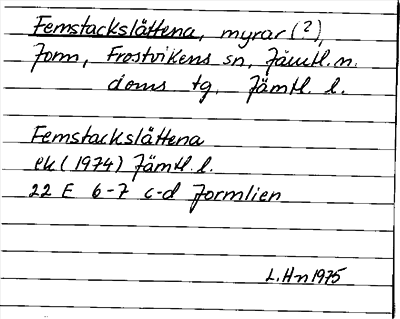 Femstackslåttena, myrar (?),
Jorm, Frostvikens sn, Jämtl. n.
doms tg, Jämtl. l.
Femstackslåttena
ek (1974) Jämtl. l.
22 E 6-7 c-d Jormlien
L. Hn 1975